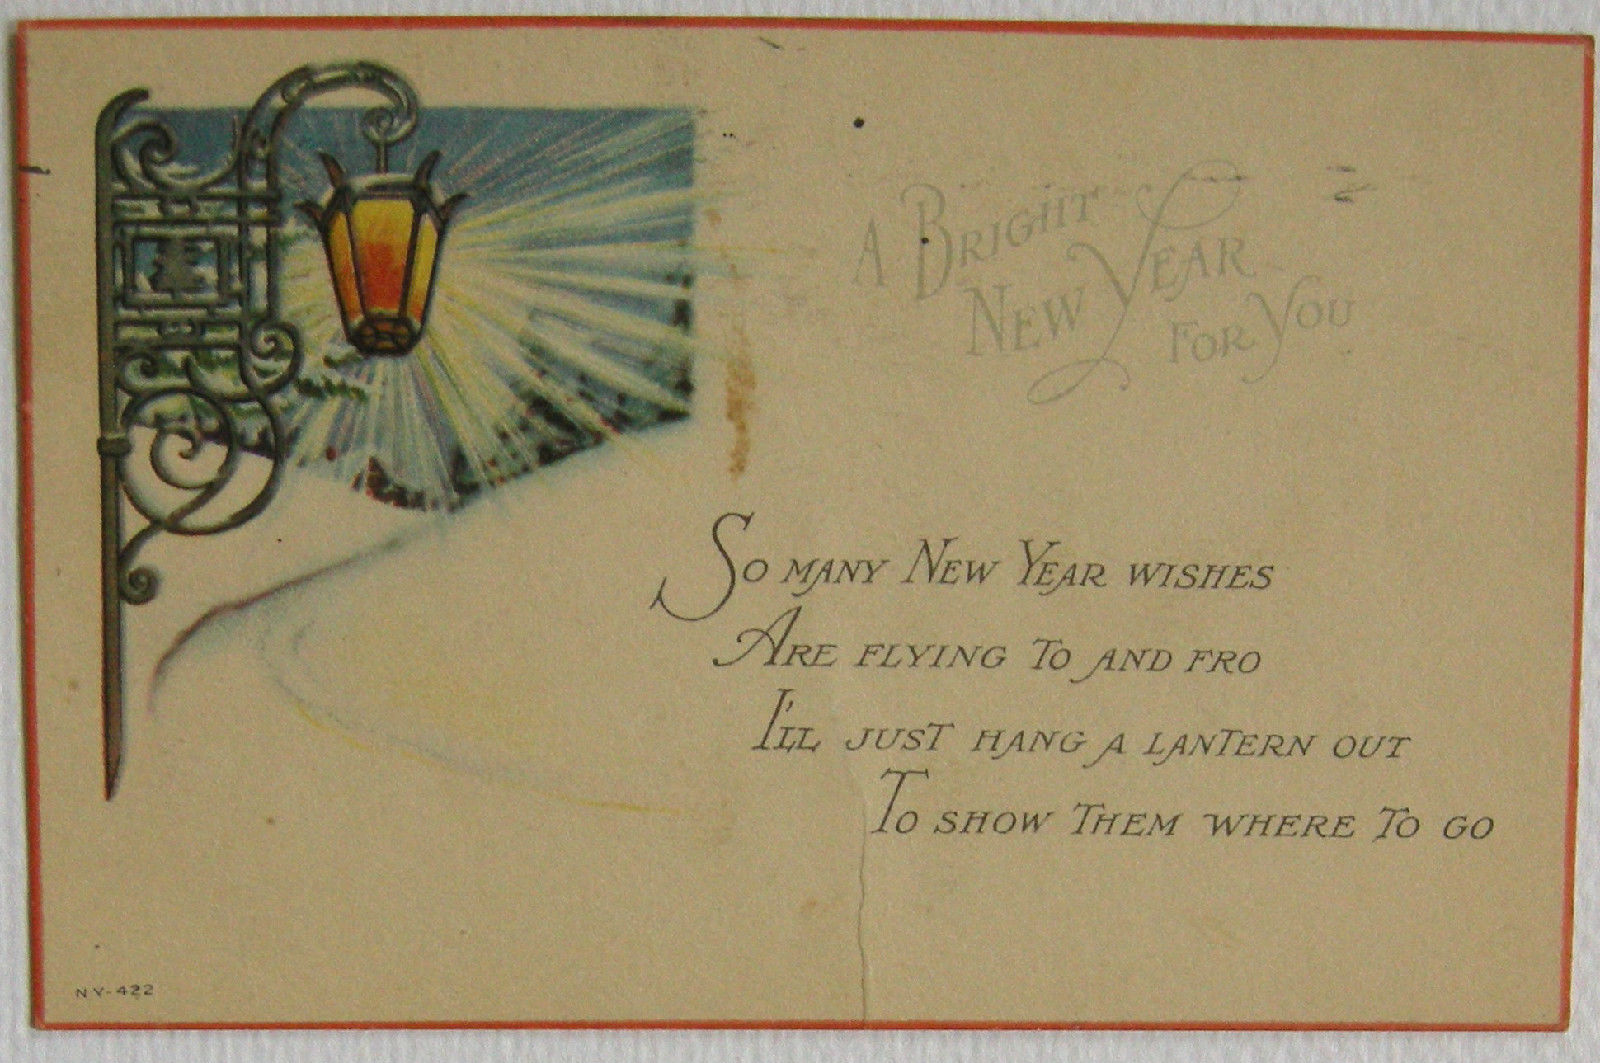 A Bright
New Year
For You
So many New Year wishes
Are flying to and fro
I'll just hang a lantern out
To show them where to go
NY-422